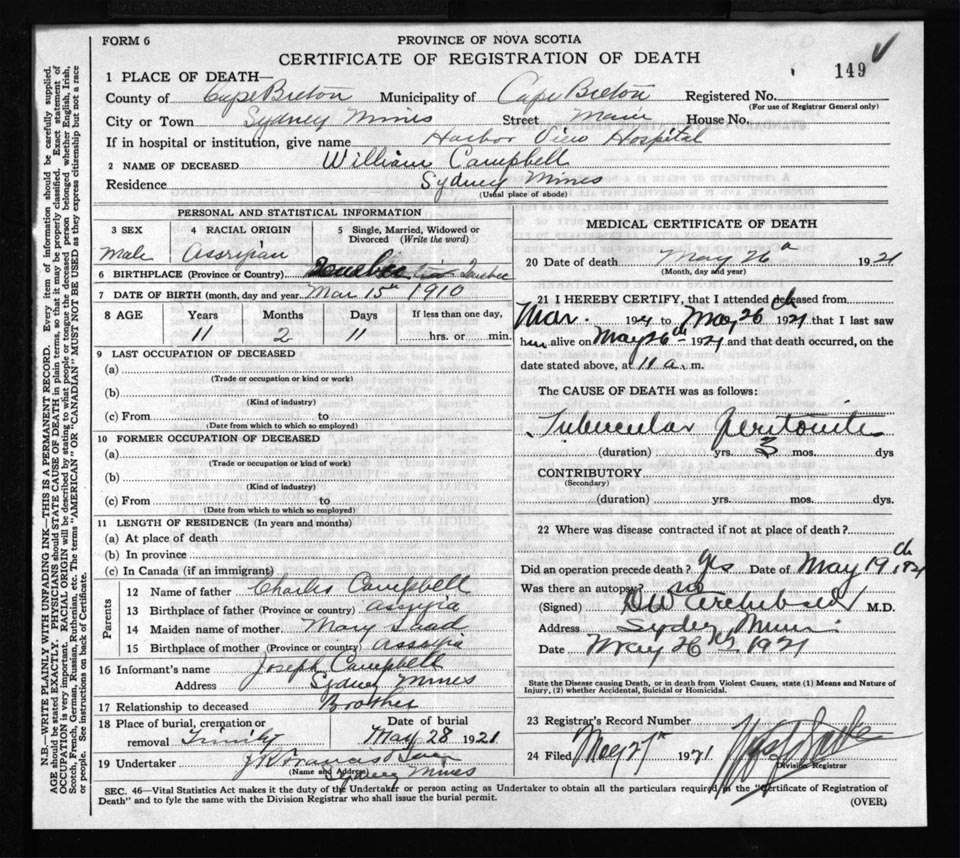 FORM 6
PROVINCE OF NOVA SCOTIA
CERTIFICATE OF REGISTRATION OF DEATH
149
1 PLACE OF DEATH—
County of Cape Breton Municipality of Cape Breton Registered No.
(For use of Registrar General only)
City or Town Sydney Mines Street Main House No.
If in hospital or institution, give name Harbor View Hospital
2 NAME OF DECEASED William Campbell
Residence Sydney Mines
(Usual place of abode)
PERSONAL AND STATISTICAL INFORMATION
3 SEX 4 RACIAL ORIGIN 5 Single, Married, Widowed or Divorced (Write the word)
male Assyrian
6 BIRTHPLACE (Province or Country) Quebec
7 DATE OF BIRTH (month, day and year Mar 15th 1910
8 AGE Years Months Days If less than one day,
11 2 11 hrs. or min.
9 LAST OCCUPATION OF DECEASED
(a)
(Trade or occupation or kind or work)
(b)
(Kind of industry)
(c) From to
(Date from which to which so employed)
10 FORMER OCCUPATION OF DECEASED
(a)
(Trade or occupation or kind of work)
(b)
(Kind of industry)
(c) From to
(Date from which to which so employed)
11 LENGTH OF RESIDENCE (In years and months)
(a) At place of death
(b) In province
(c) In Canada (if an immigrant)
Parents
12 Name of father Charles Campbell
13 Birthplace of father (Province or country) Assyria
14 Maiden name of mother Mary
15 Birthplace of mother (Province or country) Assyria
16 Informant's name Joseph Campbell
Address Sydney Mines
17 Relationship to deceased Brother
18 Place of burial, cremation or Date of burial
removal Trinity May 28 1921
19 Undertaker
(Name and Address) Sydney Mines
MEDICAL CERTIFICATE OF DEATH
20 Date of death May 26 1921
(Month, day and year)
21 I HEREBY CERTIFY, that I attended deceased from
Mar. 1921 to May 26th 1921 that I last saw
him alive on May 26th 1921 and that death occurred, on the
date stated above, at 11 a. m.
The CAUSE OF DEATH was as follows:
Tubercular Peritonitis
(duration) yrs. 3 mos. dys
CONTRIBUTORY
(Secondary)
(duration) yrs. mos. dys.
22 Where was disease contracted if not at place of death?
Did an operation precede death? Yes Date of May 19th 1921
Was there an autopsy? no
(Signed) Archibald M.D.
Address Sydney Mines
Date May 26th 1921
State the Disease causing Death, or in death from Violent Causes, state (1) Means and Nature of
Injury, (2) whether Accidental, Suicidal or Homicidal.
23 Registrar's Record Number
24 Filed May 27 1921
Division Registrar
SEC. 46—Vital Statistics Act makes it the duty of the Undertaker or person acting as Undertaker to obtain all the particulars required in the "Certificate of Registration of
Death" and to fyle the same with the Division Registrar who shall issue the burial permit.
(OVER)
N.B.—WRITE PLAINLY WITH UNFADING INK—THIS IS A PERMANENT RECORD. Every item of information should be carefully supplied.
AGE should be stated EXACTLY. PHYSICIANS should STATE CAUSE OF DEATH in plain terms, so that it may be properly classified. Exact statement of
OCCUPATION is very important. RACIAL ORIGIN will be described by stating to what people or tongue the deceased person belonged whether English, Irish,
Scotch, French, German, Russian, Ruthenian, etc. The terms "AMERICAN" OR "CANADIAN" MUST NOT BE USED as they express citizenship but not a race
or people. See instructions on back of Certificate.